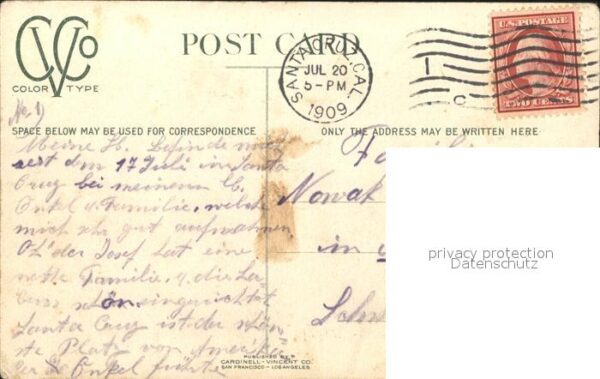 CVCo
COLOR TYPE
POST CARD
SANTA CRUZ, CAL.
JUL 20
5-PM
1909
U.S. POSTAGE
TWO CENTS
No 1)
SPACE BELOW MAY BE USED FOR CORRESPONDENCE
ONLY THE ADDRESS MAY BE WRITTEN HERE
Meine L. Befinde mich
seit dem 17 Juli in Santa
Cruz bei meinem L.
Onkel u. Familie, welche
mich sehr gut aufnahmen
der Josef hat eine
nette Familie, u. die
schön eingerichtet
Santa Cruz ist der schön
ste Platz von Amerika
der Onkel führte
Nowak
in
PUBLISHED BY
CARDINELL-VINCENT CO.
SAN FRANCISCO - LOS ANGELES
privacy protection
Datenschutz